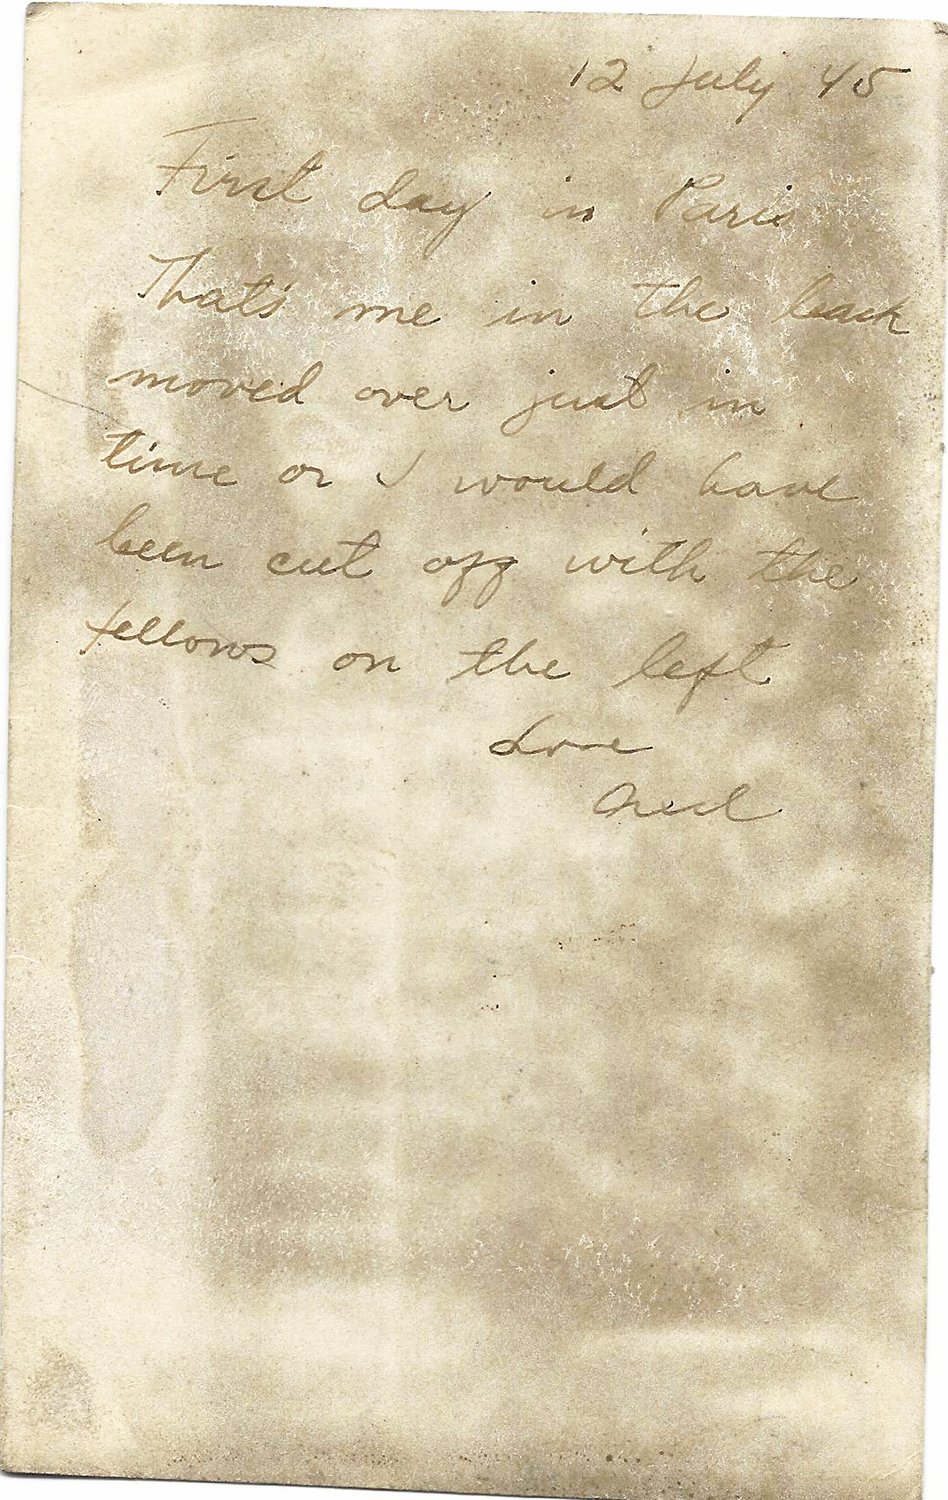 12 July 45
First day in Paris
That's me in the back
moved over just in
time or I would have
been cut off with the
fellows on the left
Love